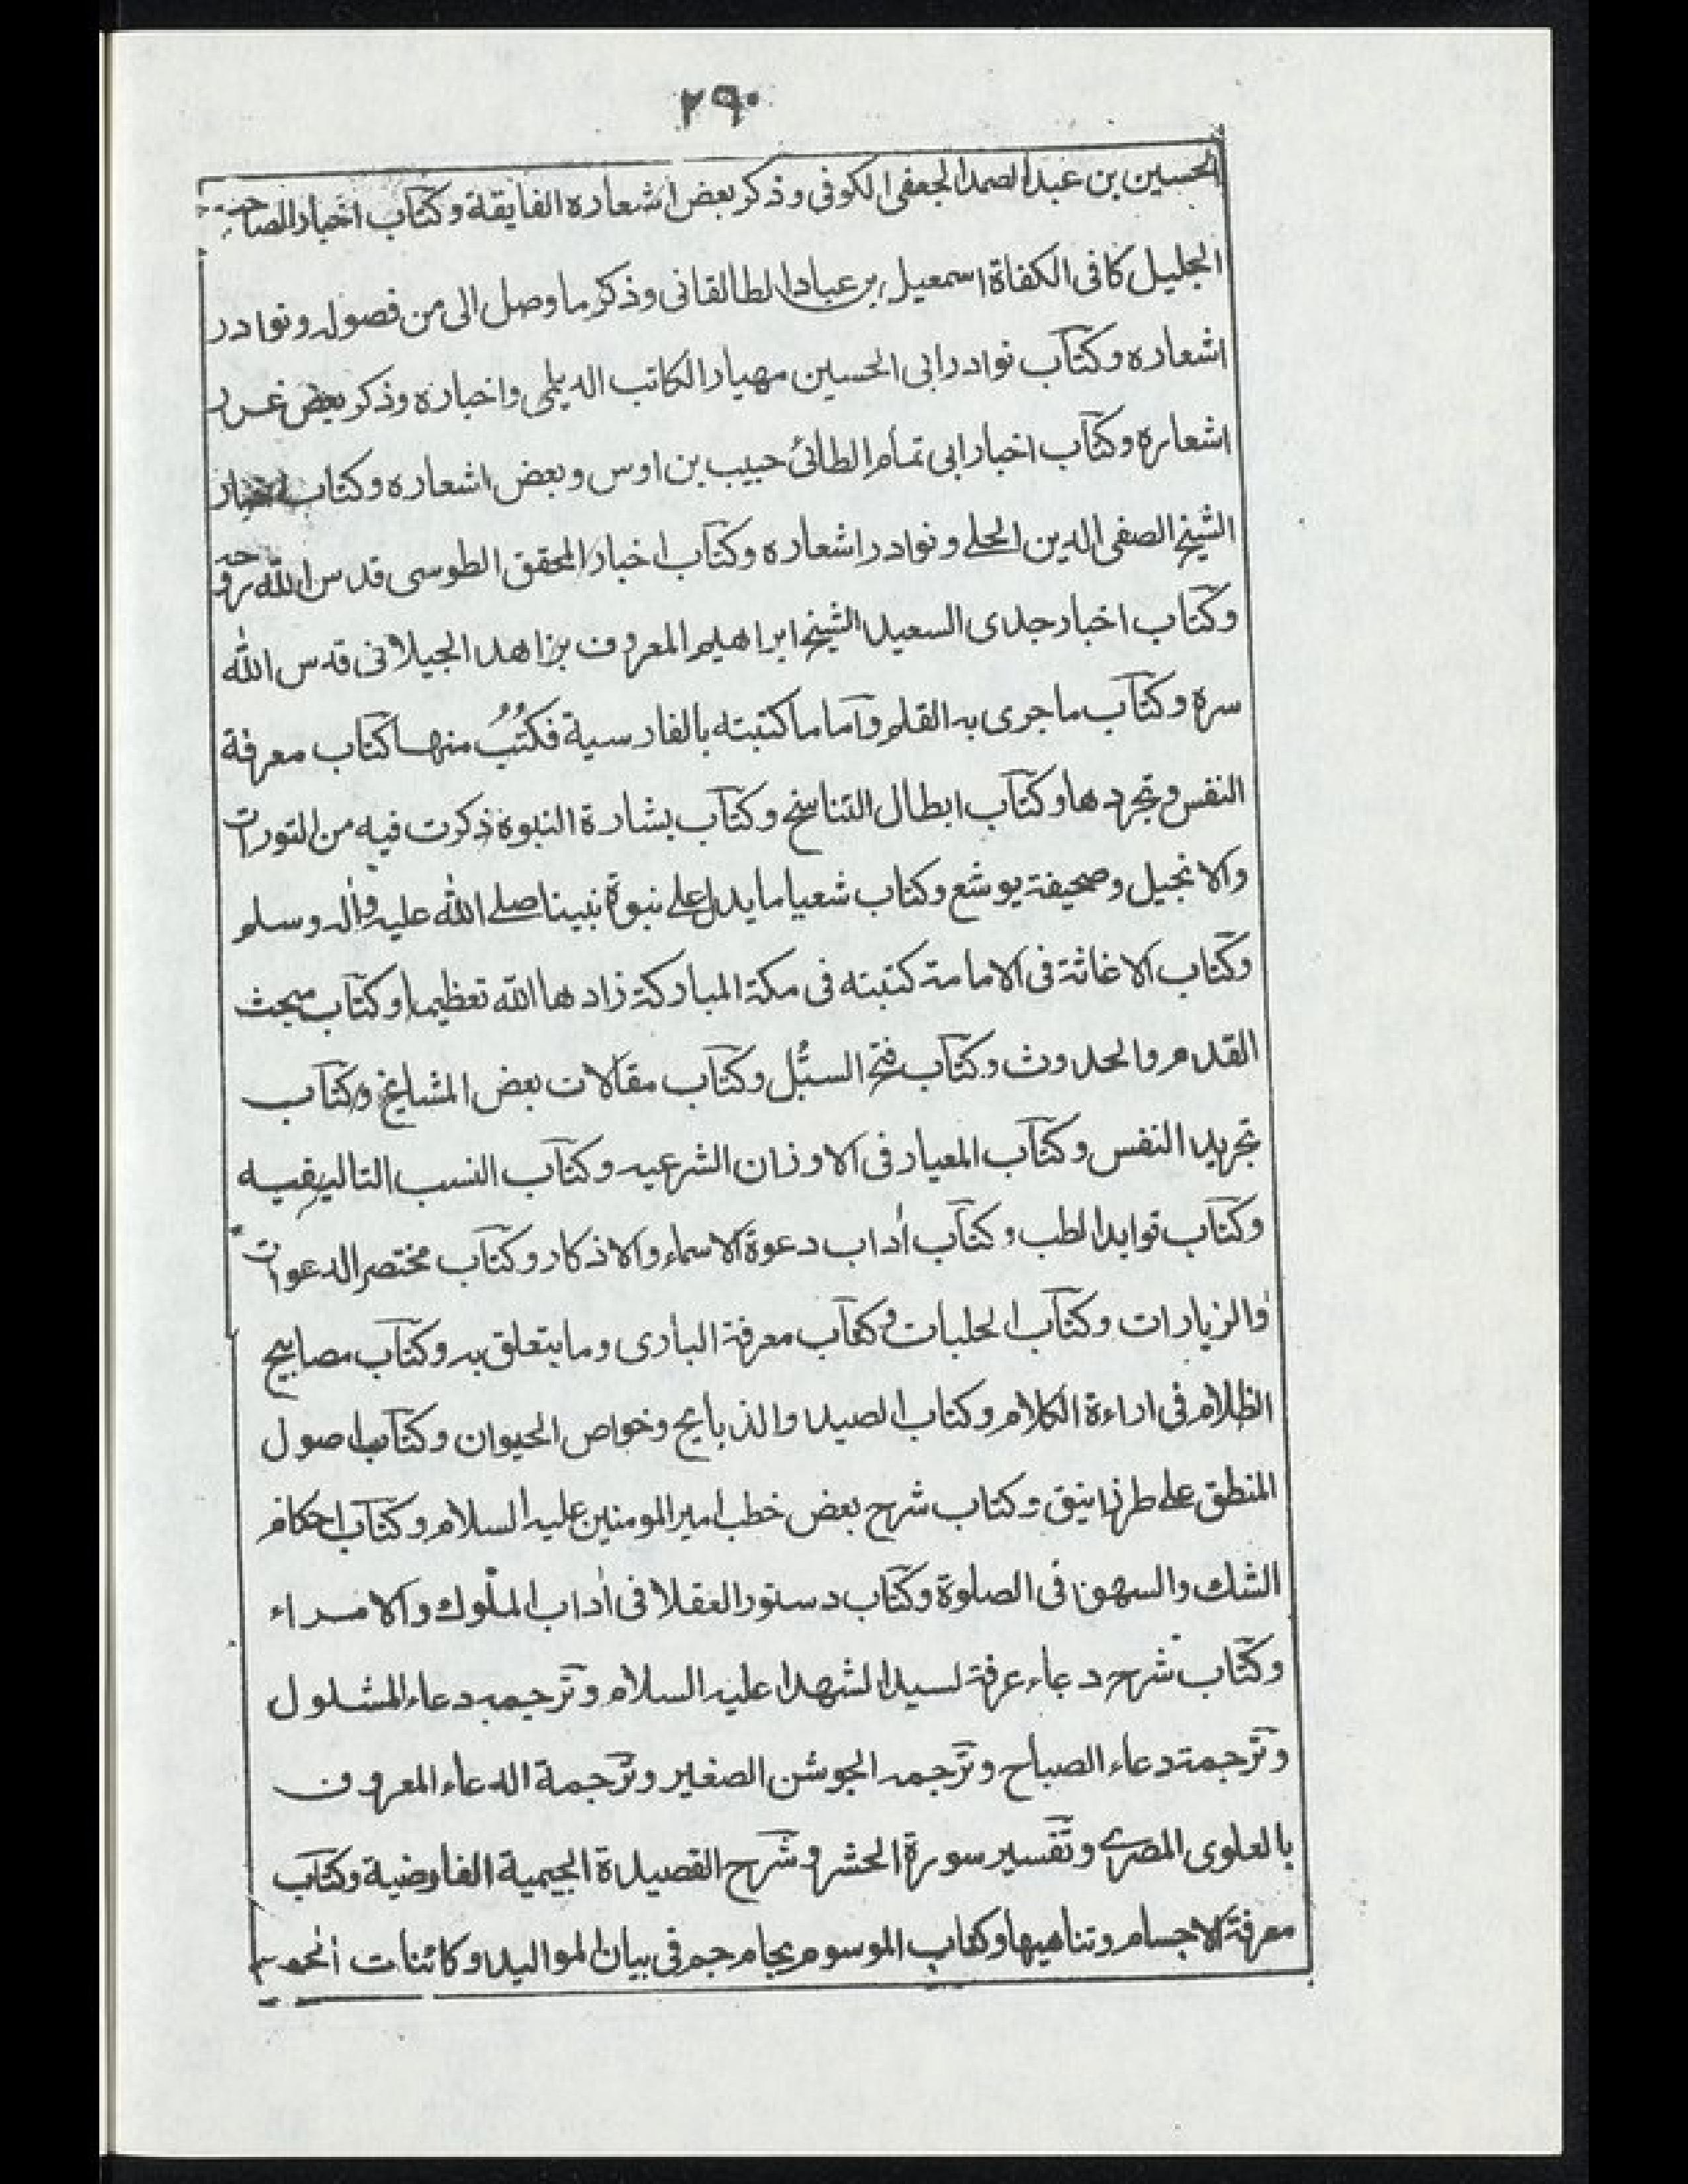 ٢٩٠
الحسين بن عبد الصمد الجعفی الکوفی وذکر بعض اشعاره الفایقة وکتاب اخبار الصاحب
الجلیل کافی الکفاة اسمعیل بن عباد الطالقانی وذکر ما وصل الی من فصوله ونوادر
اشعاره وکتاب نوادر ابی الحسین مهیار الکاتب الدیلمی واخباره وذکر بعض غرر
اشعاره وکتاب اخبار ابی تمام الطائی حبیب بن اوس وبعض اشعاره وکتاب اخبار
الشیخ الصفی الدین الحلے ونوادر اشعاره وکتاب اخبار المحقق الطوسی قدس اللّٰه روحه
وکتاب اخبار جدی السعید الشیخ ابراهیم المعروف بزاهد الجیلانی قدس اللّٰه
سره وکتاب ما جری به القلم وَاما ما کتبته بالفارسیة فکتُبُ منها کتاب معرفة
النفس وتجردها وکتاب ابطال التناسخ وکتاب بشارة النبوة ذکرت فیه من التورات
والانجیل وصحیفة یوشع وکتاب شعیا ما یدل علی نبوة نبینا صلے اللّٰه علیه واٰله وسلم
وکتاب الاغاثة فی الامامة کتبته فی مکة المبارکة زادها اللّٰه تعظیما وکتاب مبحث
القدم والحدوث وکتاب فتح السبُل وکتاب مقالات بعض المشایخ وکتاب
تجرید النفس وکتاب المعیار فی الاوزان الشرعیه وکتاب النسب التالیفیه
وکتاب فواید الطب وکتاب اٰداب دعوة الاسماء والاذکار وکتاب مختصر الدعوات
والزیارات وکتاب الحلبات وکتاب معرفة الباری وما یتعلق به وکتاب مصابیح
الظلام فی اراءة الکلام وکتاب الصید والذبایح وخواص الحیوان وکتاب اصول
المنطق علے طرز انیق وکتاب شرح بعض خطب امیر المومنین علیه السلام وکتاب احکام
الشک والسهو فی الصلوة وکتاب دستور العقلا فی اٰداب الملوک والامراء
وکتاب شرح دعاء عرفة لسید الشهدا علیه السلام وترجمه دعاء المشلول
وترجمة دعاء الصباح وترجمه الجوشن الصغیر وترجمة الدعاء المعروف
بالعلوی المصرے وتفسیر سورة الحشر وشرح القصیدة الجیمیة الفارضیة وکتاب
معرفة الاجسام وتناهیها وکتاب الموسوم بجام جم فی بیان الموالید وکائنات